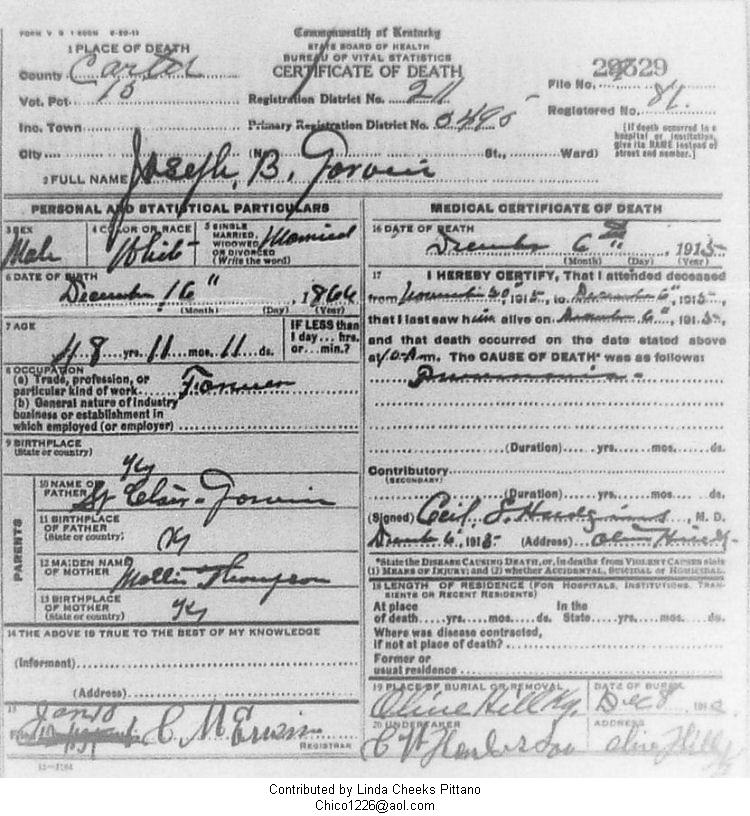 Commonwealth of Kentucky
STATE BOARD OF HEALTH
BUREAU OF VITAL STATISTICS
CERTIFICATE OF DEATH
1 PLACE OF DEATH
County Carter
Vot. Pct. 10
Inc. Town
City
Registration District No. 211
Primary Registration District No. 5495
(No. St., Ward)
File No.
29329
Registered No. 84
[If death occurred in a
hospital or institution,
give its NAME instead of
street and number.]
2 FULL NAME Joseph B.
PERSONAL AND STATISTICAL PARTICULARS
3 SEX
Male
4 COLOR OR RACE
White
5 SINGLE
MARRIED,
WIDOWED
OR DIVORCED
(Write the word)
Married
6 DATE OF BIRTH
December 16", 1866
(Month) (Day) (Year)
7 AGE
48 yrs. 11 mos. 11 ds.
IF LESS than
1 day... hrs.
or... min.?
8 OCCUPATION
(a) Trade, profession, or
particular kind of work Farmer
(b) General nature of industry
business or establishment in
which employed (or employer)
9 BIRTHPLACE
(State or country)
Ky
PARENTS
10 NAME OF
FATHER
St Clair
11 BIRTHPLACE
OF FATHER
(State or country)
Ky
12 MAIDEN NAME
OF MOTHER
Mollie Thompson
13 BIRTHPLACE
OF MOTHER
(State or country)
Ky
14 THE ABOVE IS TRUE TO THE BEST OF MY KNOWLEDGE
(Informant)
(Address)
15
Jan 18
C M Erwin
REGISTRAR
MEDICAL CERTIFICATE OF DEATH
16 DATE OF DEATH
December 6th, 1915
(Month) (Day) (Year)
17 I HEREBY CERTIFY, That I attended deceased
from November 30" 1915, to December 6", 1915,
that I last saw him alive on December 6", 1915,
and that death occurred on the date stated above
at 10 A.m. The CAUSE OF DEATH* was as follows:
Pneumonia
(Duration) yrs. mos. ds.
Contributory
(SECONDARY)
(Duration) yrs. mos. ds.
(Signed) Ceil S. Hudgins, M. D.
Decemb 6, 1915 (Address) Olive Hill Ky
*State the DISEASE CAUSING DEATH, or, in deaths from VIOLENT CAUSES state
(1) MEANS OF INJURY; and (2) whether ACCIDENTAL, SUICIDAL or HOMICIDAL.
18 LENGTH OF RESIDENCE (FOR HOSPITALS, INSTITUTIONS, TRANSIENTS OR RECENT RESIDENTS)
At place
of death yrs. mos. ds.
In the
State yrs. mos. ds.
Where was disease contracted,
if not at place of death?
Former or
usual residence
19 PLACE OF BURIAL OR REMOVAL
Olive Hill Ky.
DATE OF BURIAL
Dec 8 191
20 UNDERTAKER
C W Henderson
ADDRESS
Olive Hill
Contributed by Linda Cheeks Pittano
Chico1226@aol.com